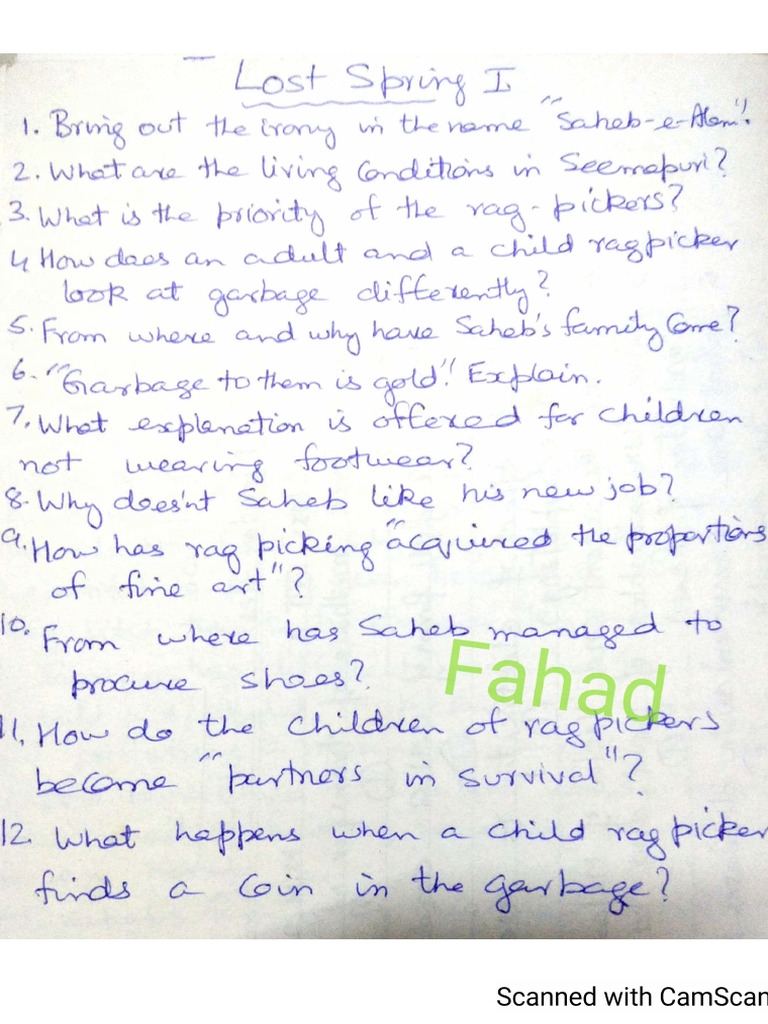 Lost Spring I
1. Bring out the irony in the name "Saheb-e-Alam".
2. What are the living Conditions in Seemapuri?
3. What is the priority of the rag-pickers?
4 How does an adult and a child ragpicker
look at garbage differently?
5. From where and why have Saheb's family Come?
6. "Garbage to them is gold". Explain.
7. What explanation is offered for children
not wearing footwear?
8. Why does'nt Saheb like his new job?
9. How has rag picking "acquired the proportions
of fine art"?
10. From where has Saheb managed to
procure shoes?
Fahad
11. How do the children of ragpickers
become "partners in survival"?
12. What happens when a child ragpicker
finds a Coin in the garbage?
Scanned with CamScan